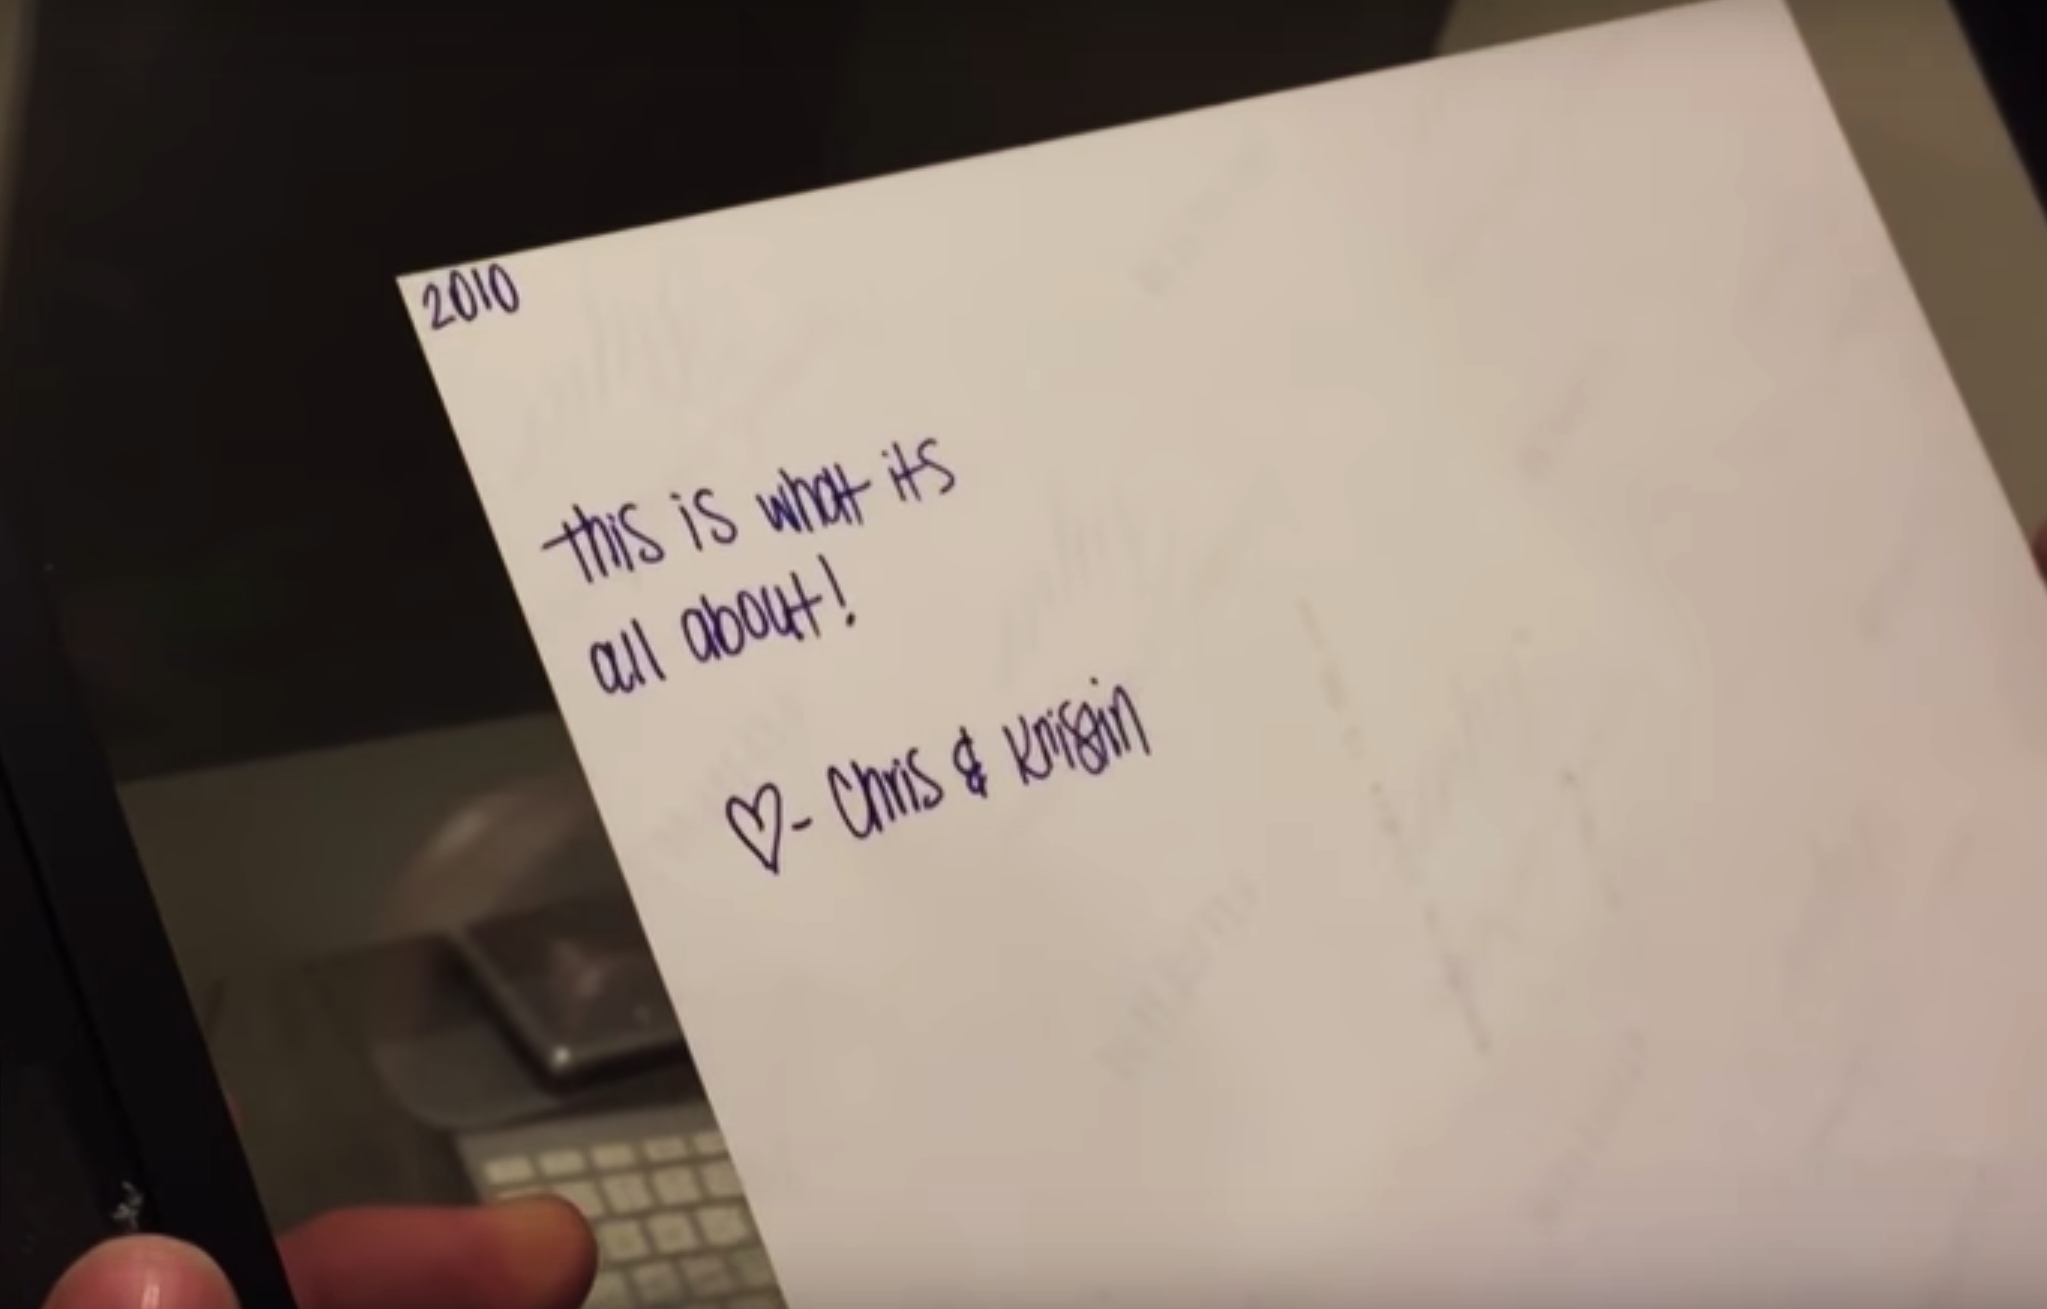 2010
this is what its
all about!
♡- Chris & Kristin